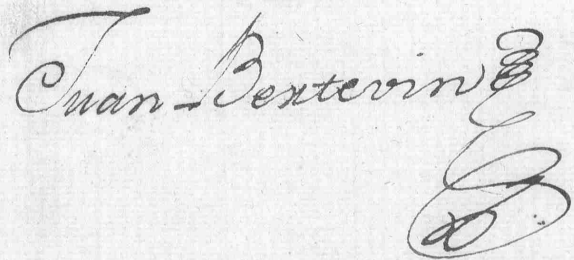 Juan Bertevin